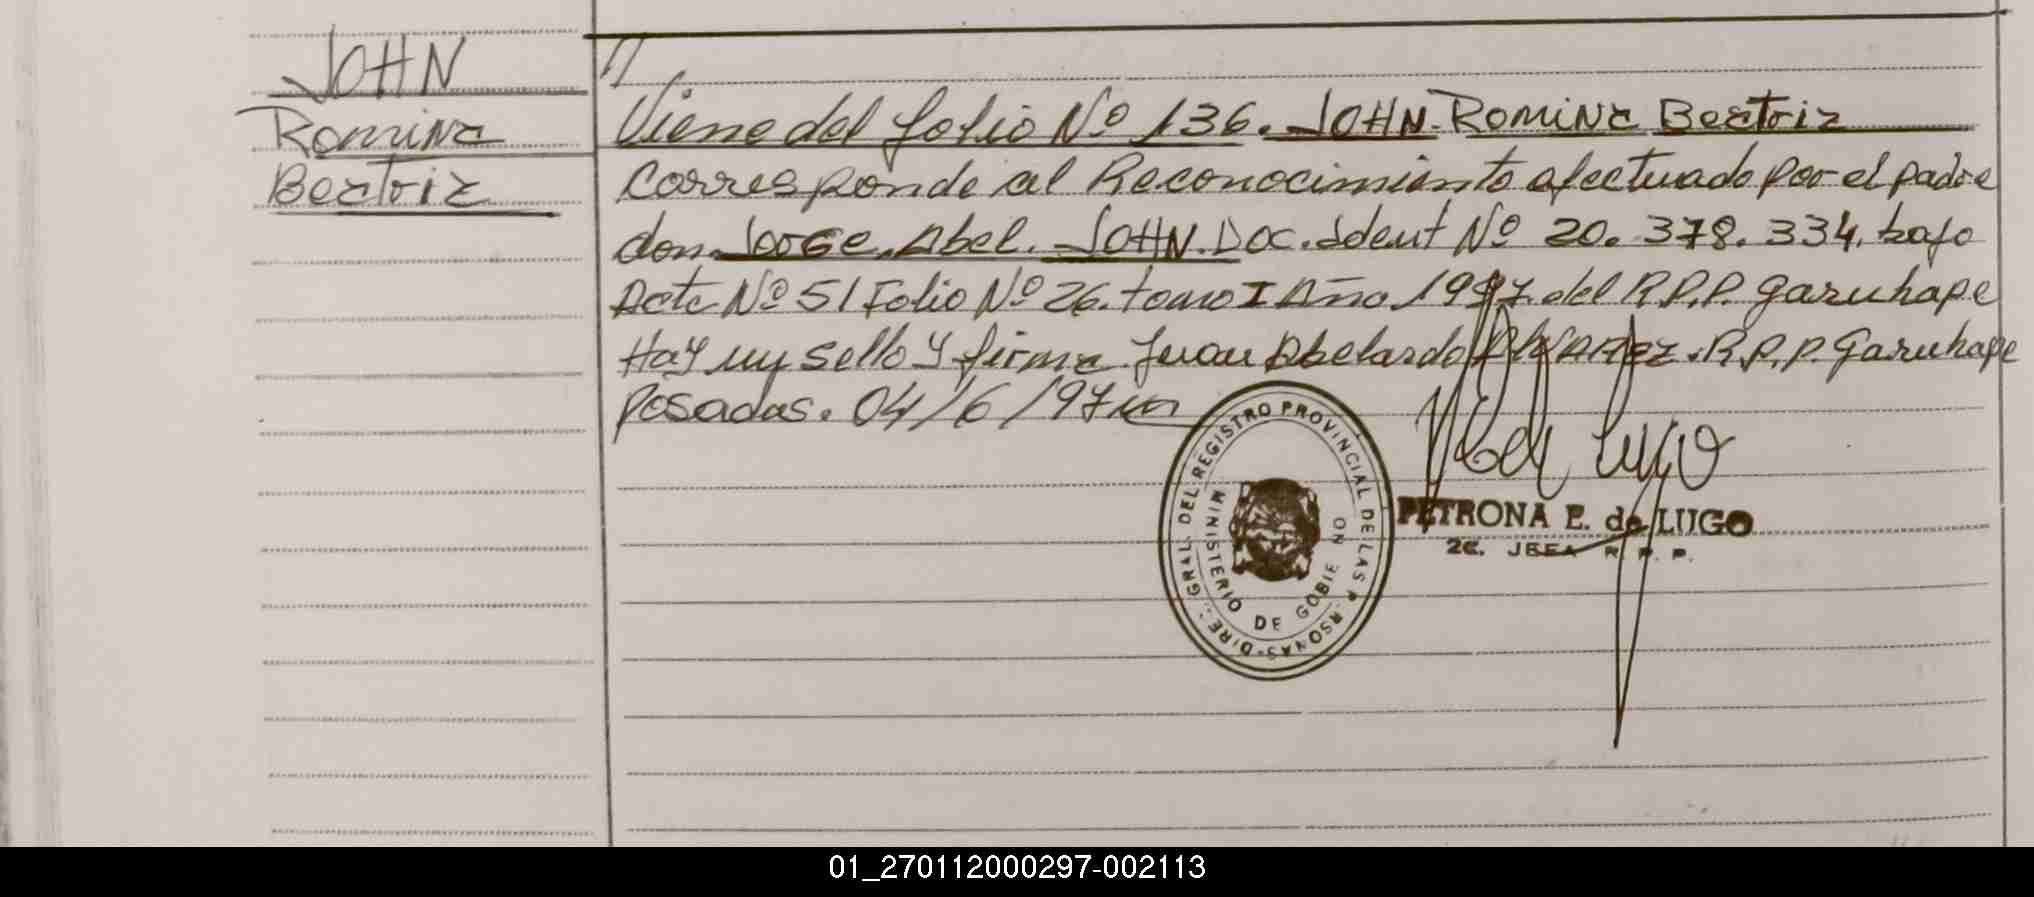 JOHN
Romina
Beatriz
//
Viene del folio Nº 136. JOHN Romina Beatriz
Corresponde al Reconocimiento efectuado por el padre
don Jorge Abel JOHN. Doc. Ident Nº 20.378.334, bajo
Acta Nº 51 Folio Nº 26. tomo I Año 1997 del R.P.P. Garuhape
Hay un sello y firma Juan Abelardo Alvarez. R.P.P. Garuhape
Posadas. 04/6/97
DIRE. GRAL. DEL REGISTRO PROVINCIAL DE LAS P RSONAS
MINISTERIO DE GOBIE NO
PETRONA E. de LUGO
2a. JEFA R. P. P.
01_270112000297-002113